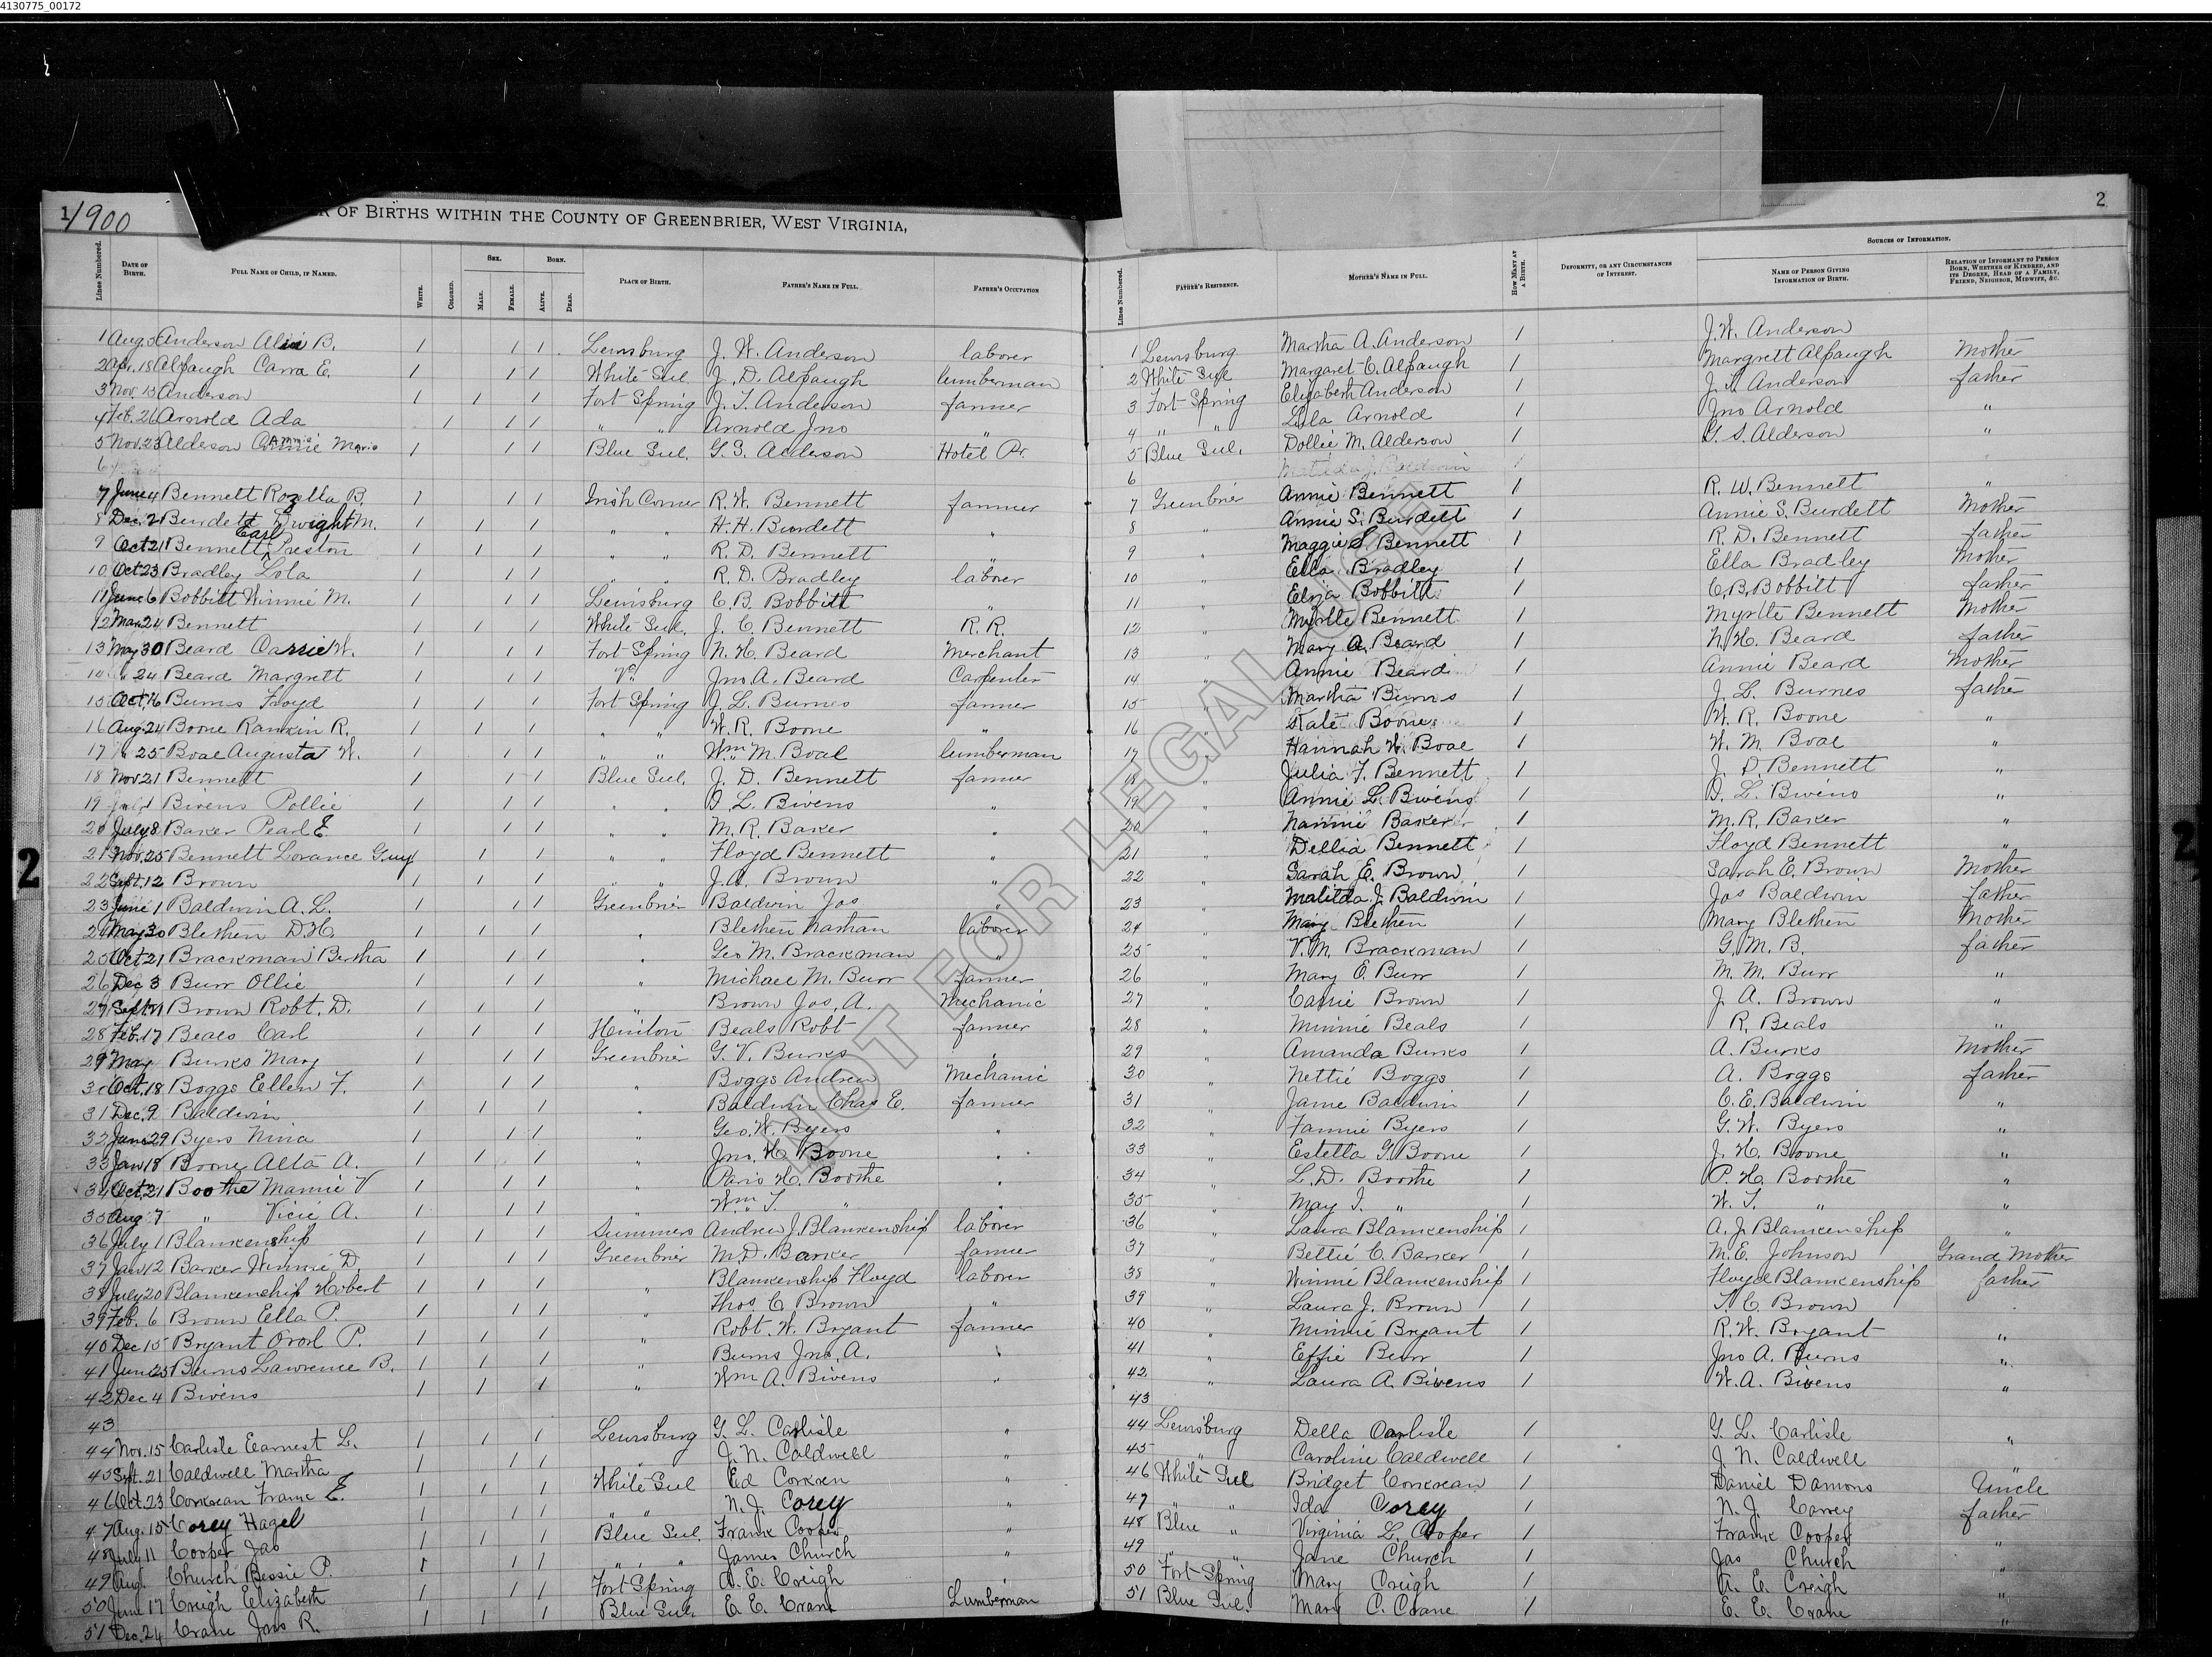 4130775_00172
1
1900
R OF BIRTHS WITHIN THE COUNTY OF GREENBRIER, WEST VIRGINIA,
2
Lines Numbered. DATE OF BIRTH. FULL NAME OF CHILD, IF NAMED. WHITE. COLORED. SEX. MALE. FEMALE. BORN. ALIVE. DEAD. PLACE OF BIRTH. FATHER'S NAME IN FULL. FATHER'S OCCUPATION Lines Numbered. FATHER'S RESIDENCE. MOTHER'S NAME IN FULL. HOW MANY AT A BIRTH. DEFORMITY, OR ANY CIRCUMSTANCES OF INTEREST. SOURCES OF INFORMATION. NAME OF PERSON GIVING INFORMATION OF BIRTH. RELATION OF INFORMANT TO PERSON BORN, WHETHER OF KINDRED, AND ITS DEGREE, HEAD OF A FAMILY, FRIEND, NEIGHBOR, MIDWIFE, &C.
1 Aug. Anderson B. 1 1 1 Lewisburg J. W. Anderson laborer 1 Lewisburg Martha A. Anderson 1 J. W. Anderson
2 Apr. 18 Alpaugh Carra E. 1 1 1 White Sul. J. D. Alpaugh lumberman 2 White Sul Margaret C. Alpaugh 1 Margrett Alpaugh Mother
3 Nov. 13 Anderson 1 1 1 Fort Spring J. T. Anderson farmer 3 Fort Spring Elizabeth Anderson 1 J. T. Anderson father
4 Feb. 26 Arnold Ada 1 1 1 " " Arnold Jno " 4 " " Lila Arnold 1 Jno Arnold "
5 Nov. 23 Alderson Annie Marie 1 1 1 Blue Sul. G. S. Alderson Hotel Pr. 5 Blue Sul. Dollie M. Alderson 1 G. S. Alderson "
6 6 Matilda J. Baldwin 1
7 June 4 Bennett Rozella B. 1 1 1 Irish Corner R. W. Bennett farmer 7 Greenbrier Annie Bennett 1 R. W. Bennett "
8 Dec. 2 Burdett Dwight M. 1 1 1 " " H. H. Burdett " 8 " Annie S. Burdett 1 Annie S. Burdett Mother
9 Oct 21 Bennett Earl Preston 1 1 1 " " R. D. Bennett " 9 " Maggie S. Bennett 1 R. D. Bennett father
10 Oct 23 Bradley Lola 1 1 1 " " R. D. Bradley laborer 10 " Ella Bradley 1 Ella Bradley Mother
11 June 6 Bobbitt Winnie M. 1 1 1 Lewisburg C. B. Bobbitt " 11 " Eliza Bobbitt 1 C. B. Bobbitt father
12 Mar. 24 Bennett 1 1 1 White Sul. J. C. Bennett R. R. 12 " Myrtle Bennett 1 Myrtle Bennett Mother
13 May 30 Beard Carrie W. 1 1 1 Fort Spring N. H. Beard Merchant 13 " Mary A. Beard 1 N. H. Beard father
14 " 24 Beard Margrett 1 1 1 Jno. A. Beard Carpenter 14 " Annie Beard 1 Annie Beard Mother
15 Oct. 16 Burns Floyd 1 1 1 Fort Spring J. L. Burnes farmer 15 " Martha Burns 1 J. L. Burnes father
16 Aug. 24 Boone Rankin R. 1 1 1 " " W. R. Boone " 16 " Kate Boone 1 W. R. Boone "
17 " 25 Boal Augusta W. 1 1 1 " " Wm. M. Boal lumberman 17 " Hannah W. Boal 1 W. M. Boal "
18 Nov 21 Bennett 1 1 1 Blue Sul. J. D. Bennett farmer 18 " Julia F. Bennett 1 J. D. Bennett "
19 Bivens Pollie 1 1 1 " " D. L. Bivens " 19 " Annie L. Bivens 1 D. L. Bivens "
20 July 8 Baker Pearl E 1 1 1 " " M. R. Baker " 20 " Nannie Baker 1 M. R. Baker "
21 Nov. 25 Bennett Lorance Guy 1 1 " " Floyd Bennett " 21 " Dellia Bennett 1 Floyd Bennett "
22 Sept. 12 Brown 1 1 1 " " J. A. Brown " 22 " Sarah E. Brown 1 Sarah E. Brown Mother
23 June 1 Baldwin A. L. 1 1 1 Greenbrier Baldwin Jas " 23 " Matilda J. Baldwin 1 Jas Baldwin father
24 May 30 Blethen D. H. 1 1 1 " Blethen Nathan laborer 24 " Mary Blethen 1 Mary Blethen Mother
25 Oct 21 Brackman Bertha 1 1 1 " Geo M. Brackman " 25 " V. M. Brackman 1 G. M. B. father
26 Dec 3 Burr Ollie 1 1 1 " Michael M. Burr farmer 26 " Mary E. Burr 1 M. M. Burr "
27 Sept 21 Brown Robt. D. 1 1 1 " Brown Jas. A. Mechanic 27 " Carrie Brown 1 J. A. Brown "
28 Feb. 17 Beals Carl 1 1 1 Hinton Beals Robt farmer 28 " Minnie Beals 1 R. Beals "
29 May Burks Mary 1 1 1 Greenbrier G. V. Burks " 29 " Amanda Burks 1 A. Burks Mother
30 Oct. 18 Boggs Ellen F. 1 1 1 " Boggs Andrew Mechanic 30 " Nettie Boggs 1 A. Boggs father
31 Dec. 9 Baldwin 1 1 1 " Baldwin Chas E. farmer 31 " Jame Baldwin 1 C. E. Baldwin "
32 June 29 Byers Nina 1 1 1 " Geo. W. Byers " 32 " Fannie Byers 1 G. W. Byers "
33 Jan 18 Boone Alta A. 1 1 1 " Jno. H. Boone " 33 " Estella G. Boone 1 J. H. Boone "
34 Oct. 21 Boothe Mamie V 1 1 1 " Paris H. Boothe " 34 " L. D. Boothe 1 P. H. Boothe "
35 Aug 7 " Vicie A. 1 1 1 " Wm. T. " " 35 " May I. " 1 W. T. " "
36 July 1 Blankenship 1 1 1 Summers Andrew J. Blankenship laborer 36 " Laura Blankenship 1 A. J. Blankenship "
37 Jan 12 Barker Winnie D. 1 1 1 Greenbrier M. D. Barker farmer 37 " Bettie C. Barker 1 M. E. Johnson Grand Mother
38 July 20 Blankenship Hobert 1 1 1 " Blankenship Floyd laborer 38 " Winnie Blankenship 1 Floyd Blankenship father
39 Feb. 6 Brown Ella P. 1 1 1 " Thos. C. Brown " 39 " Laura J. Brown 1 T. C. Brown "
40 Dec 15 Bryant Oral P. 1 1 1 " Robt. W. Bryant farmer 40 " Minnie Bryant 1 R. W. Bryant "
41 June 25 Burns Lawrence B. 1 1 1 " Burns Jno. A. " 41 " Effie Burr 1 Jno A. Burns "
42 Dec 4 Bivens 1 1 1 " Wm A. Bivens " 42 " Laura A. Bivens 1 W. A. Bivens "
43 43
44 Nov. 15 Carlisle Earnest L. 1 1 1 Lewisburg G. L. Carlisle " 44 Lewisburg Della Carlisle 1 G. L. Carlisle "
45 Sept. 21 Caldwell Martha 1 1 1 " J. N. Caldwell " 45 " Caroline Caldwell 1 J. N. Caldwell "
46 Oct. 23 Corkrean Frank E. 1 1 1 White Sul Ed Corkren " 46 White Sul Bridget Corkrean 1 Daniel Damons Uncle
47 Aug. 15 Corey Hazel 1 1 1 " " N. J. Corey " 47 " " Ida Corey 1 N. J. Correy father
48 July 11 Cooper Jas 1 1 1 Blue Sul. Frank Cooper " 48 Blue " Virginia L. Cooper 1 Frank Cooper "
49 Aug. Church Bessie P. 1 1 1 " " James Church " 49 " " Jane Church 1 Jas Church "
50 June 17 Creigh Elizabeth 1 1 1 Fort Spring A. E. Creigh 50 Fort Spring Mary Creigh 1 A. E. Creigh "
51 Dec. 24 Crane Jno R. 1 1 1 Blue Sul. E. E. Crane Lumberman 51 Blue Sul. Mary C. Crane 1 E. E. Crane "
NOT FOR LEGAL USE
2
2